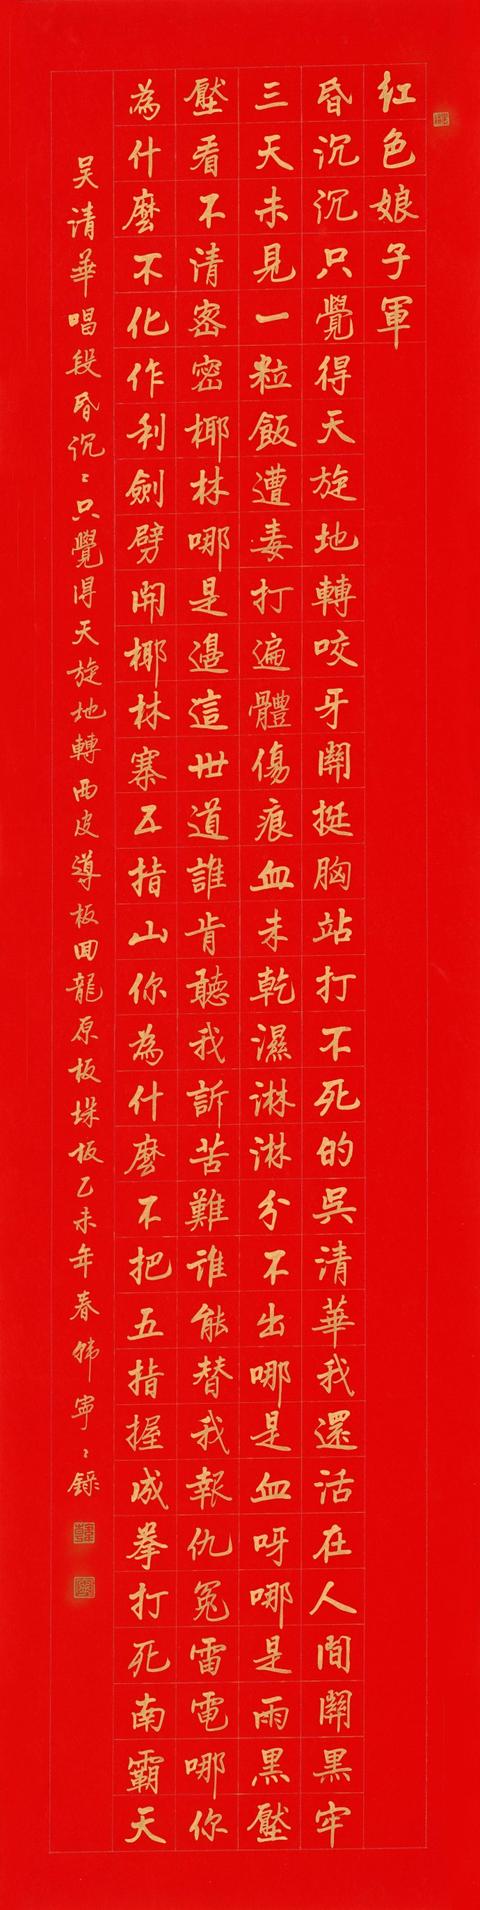 紅色娘子軍
昏沉沉只覺得天旋地轉咬牙關挺胸站打不死的吳清華我還活在人間關黑牢
三天未見一粒飯遭毒打遍體傷痕血未乾濕淋淋分不出哪是血呀哪是雨黑壓
壓看不清密密椰林哪是邊這世道誰肯聽我訴苦難谁能替我報仇冤雷電哪你
為什麼不化作利劍劈開椰林寨五指山你為什麼不把五指握成拳打死南霸天
吴清華唱段昏沉〻只覺得天旋地轉西皮導板回龍原板垛板乙未年春韩寧〻錄